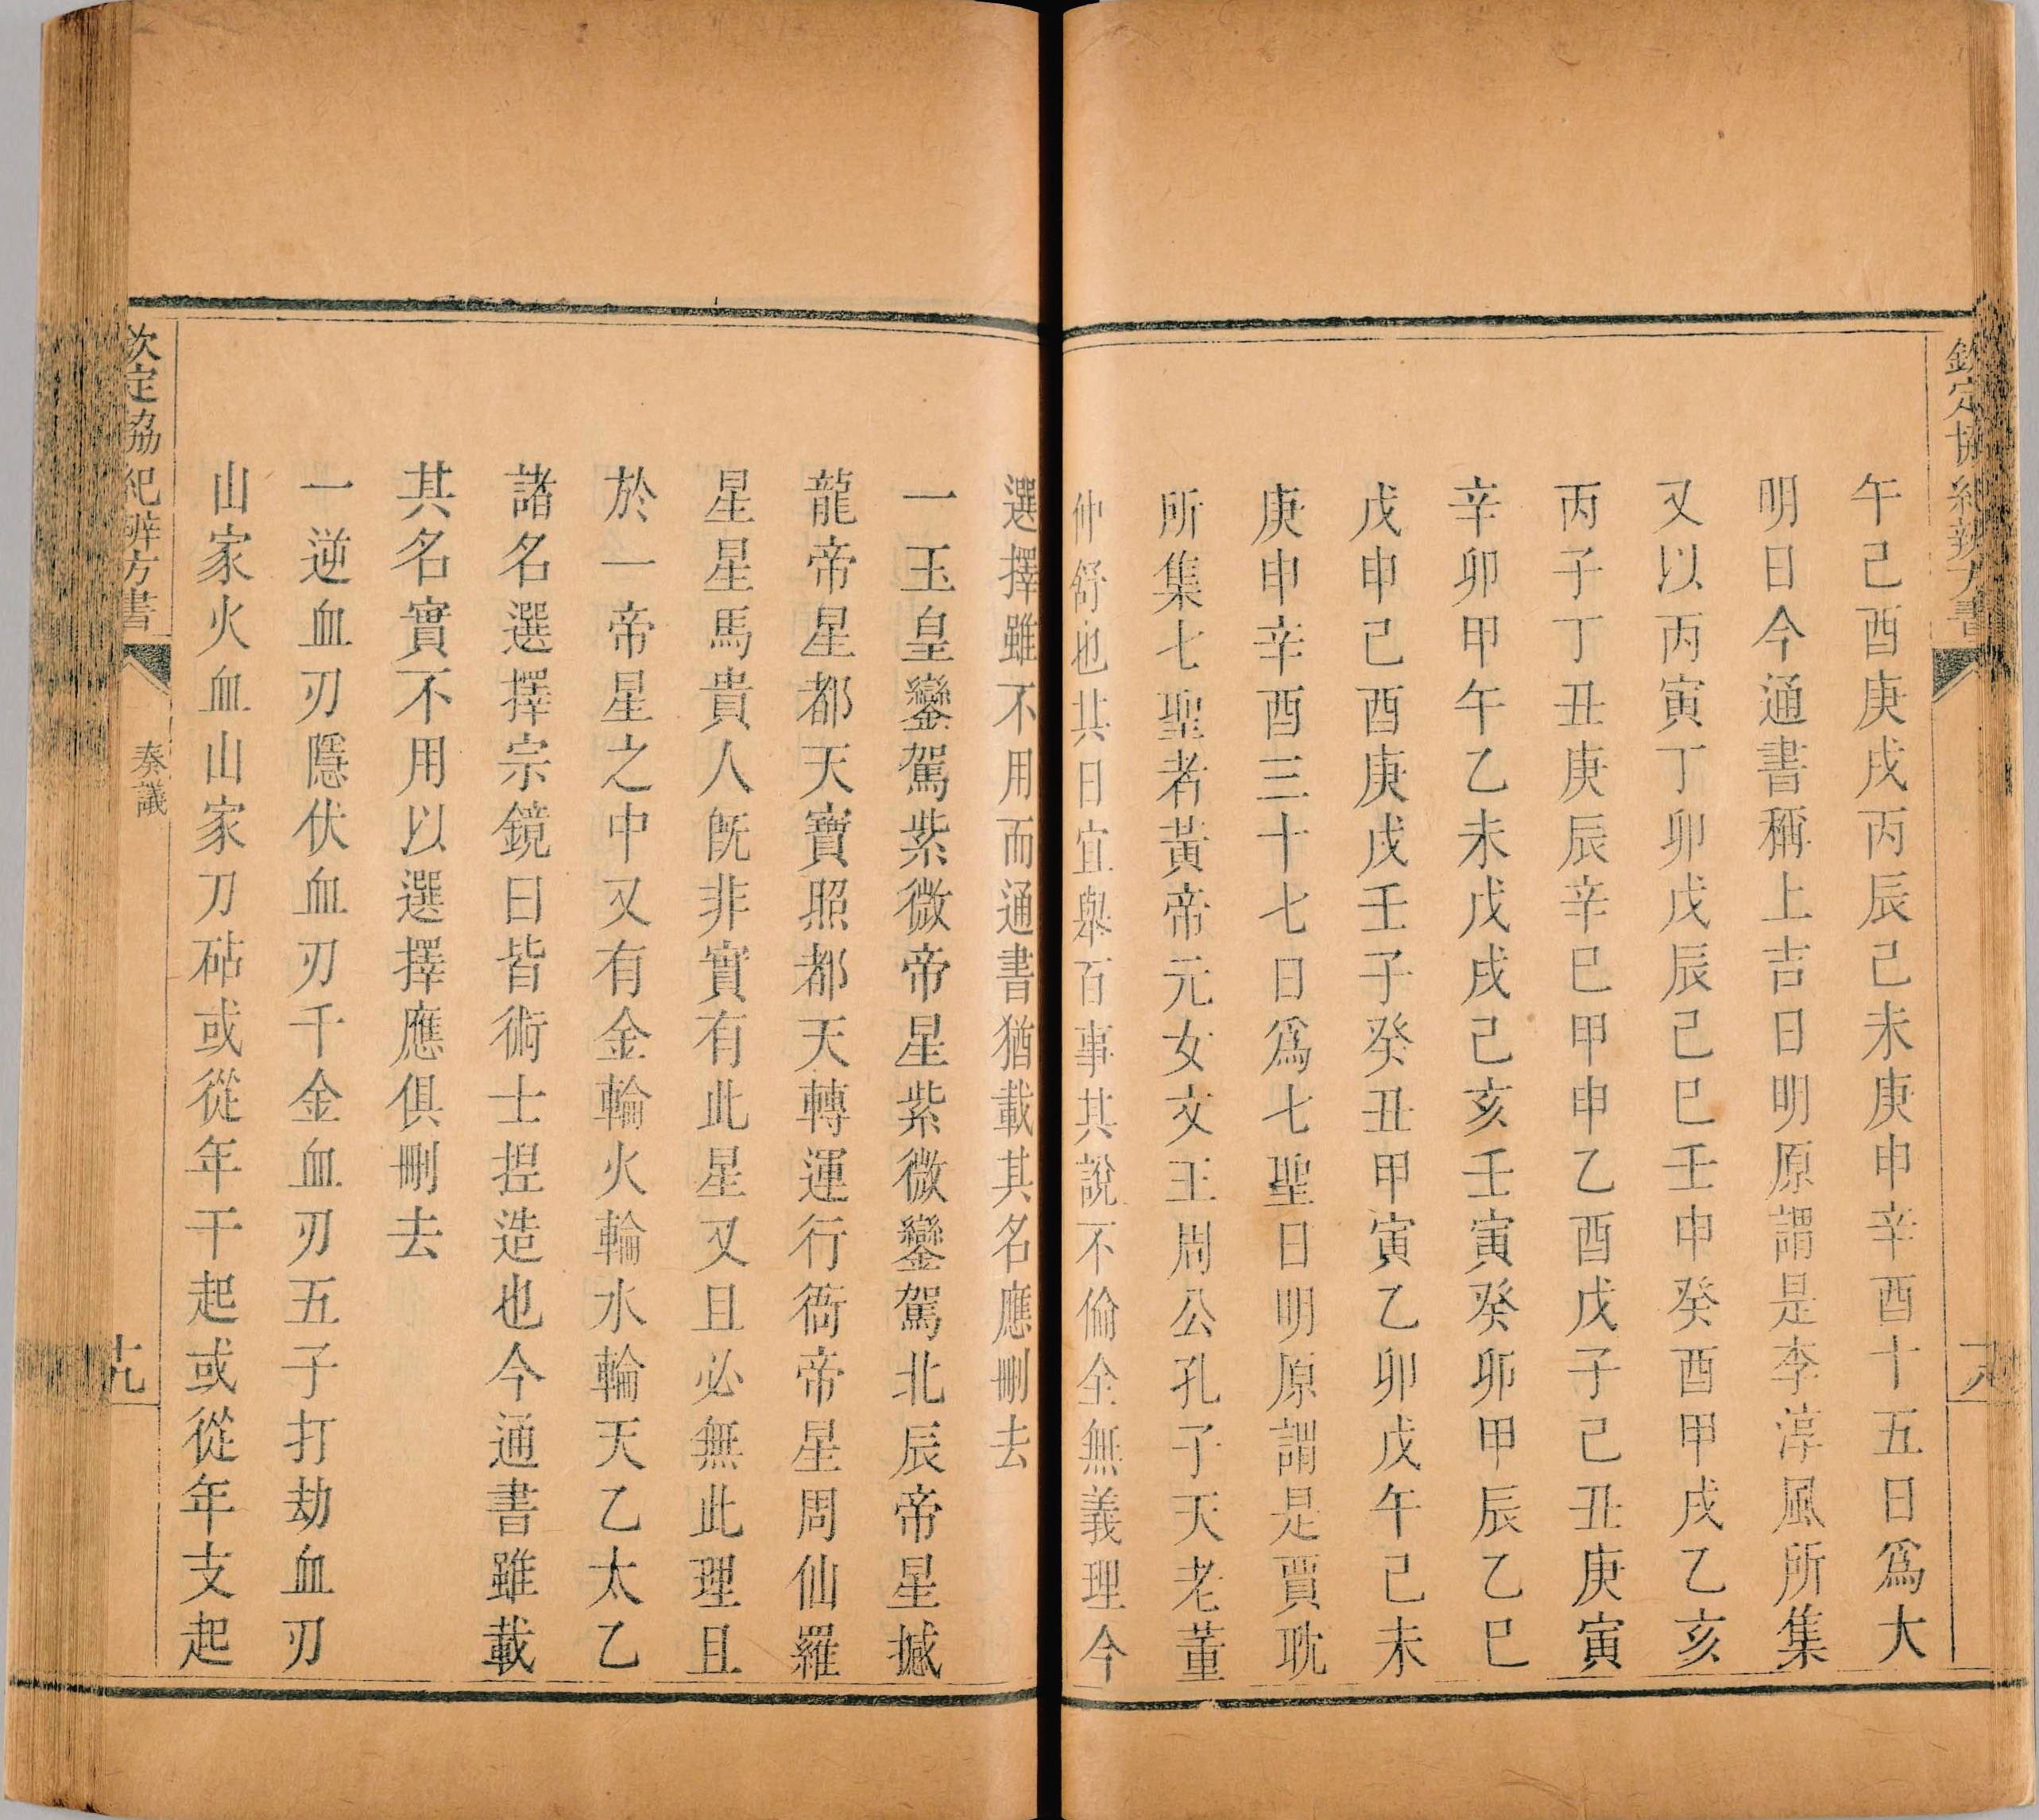 欽定協紀辨方書
午己酉庚戌丙辰己未庚申辛酉十五日爲大
明日今通書稱上吉日明原謂是李淳風所集
又以丙寅丁卯戊辰己巳壬申癸酉甲戌乙亥
丙子丁丑庚辰辛巳甲申乙酉戊子己丑庚寅
辛卯甲午乙未戊戌己亥壬寅癸卯甲辰乙巳
戊申己酉庚戌壬子癸丑甲寅乙卯戊午己未
庚申辛酉三十七日爲七聖日明原謂是賈耽
所集七聖者黃帝元女文王周公孔子天老董
仲舒也其日宜舉百事其說不倫全無義理今
選擇雖不用而通書猶載其名應刪去
一玉皇鑾駕紫微帝星紫微鑾駕北辰帝星撼
龍帝星都天寶照都天轉運行衙帝星周仙羅
星星馬貴人旣非實有此星又且必無此理且
於一帝星之中又有金輪火輪水輪天乙太乙
諸名選擇宗鏡曰皆術士揑造也今通書雖載
其名實不用以選擇應俱刪去
一逆血刃隱伏血刃千金血刃五子打劫血刃
山家火血山家刀砧或從年干起或從年支起
欽定協紀辨方書
奏議
十九